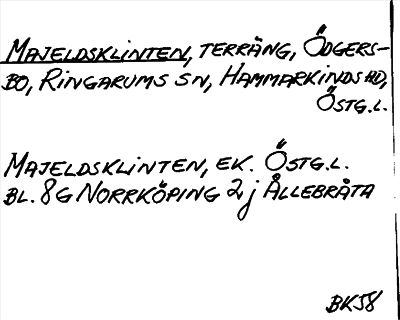 MAJELDSKLINTEN, TERRÄNG, ÖDGERS-
BO, RINGARUMS SN, HAMMARKINDS HD,
ÖSTG.L.
MAJELDSKLINTEN, EK. ÖSTG.L.
BL. 8G NORRKÖPING 2j ÅLLEBRÅTA
BK58